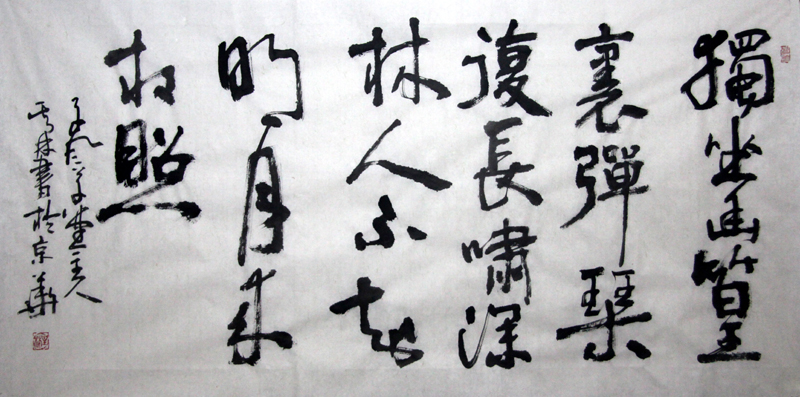 獨坐幽篁
裏彈琹
復長嘯深
林人不知
明月来
相照
主人
林書於京華